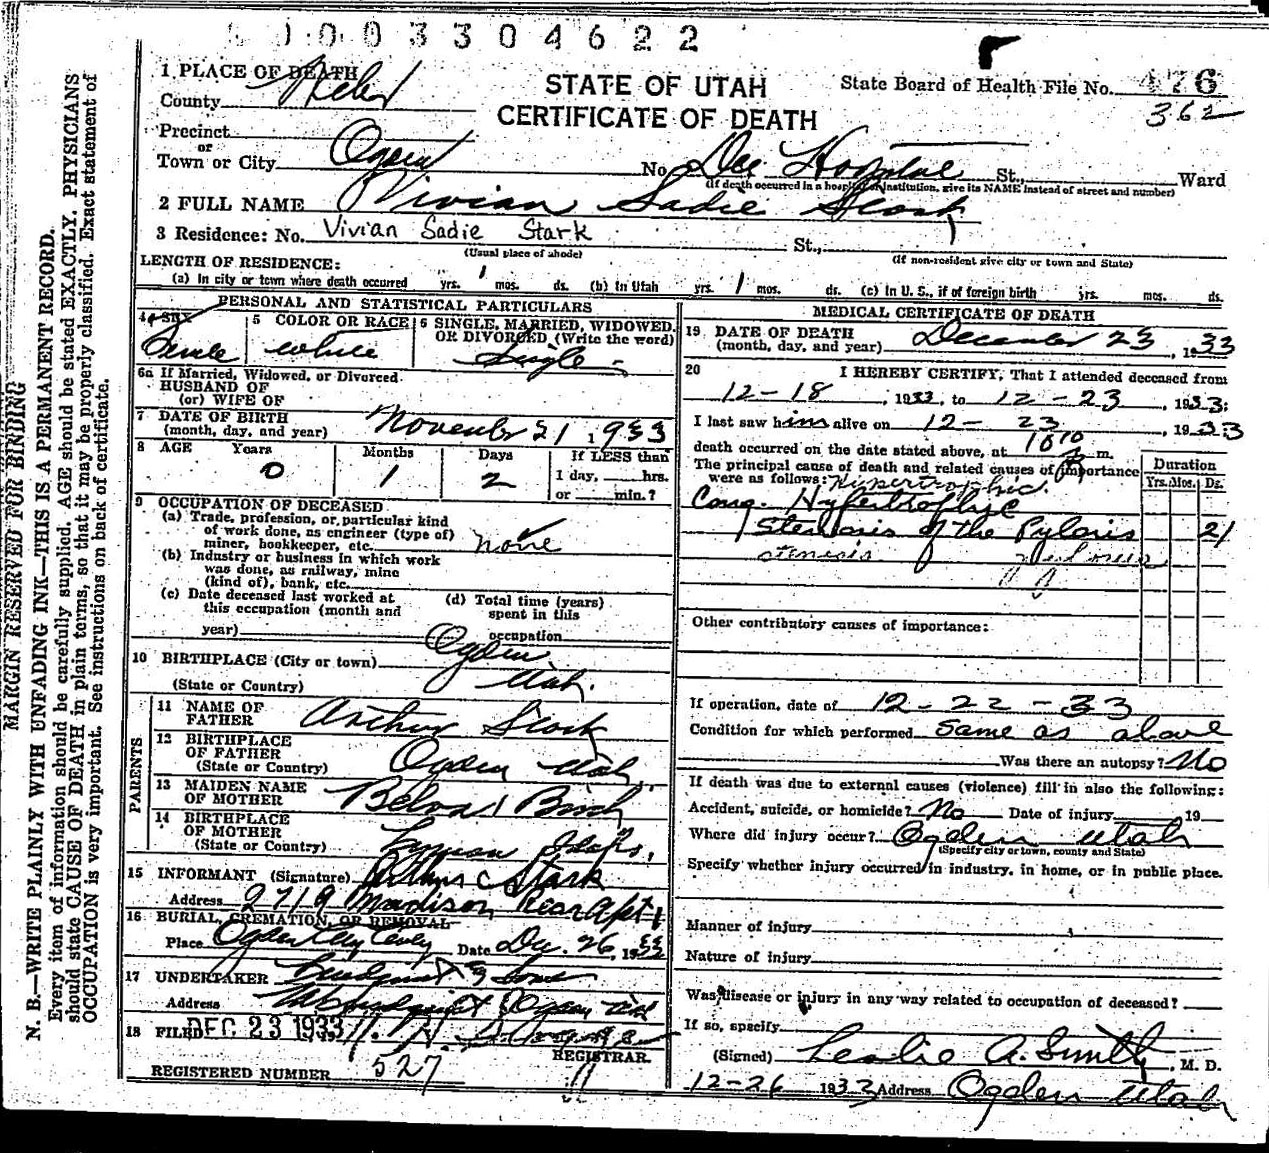 1003304622
STATE OF UTAH
CERTIFICATE OF DEATH
State Board of Health File No. 476
362
1 PLACE OF DEATH
County Weber
Precinct
or
Town or City Ogden No. Dee Hospital St., Ward
(If death occurred in a hospital or institution, give its NAME instead of street and number)
2 FULL NAME Vivian Sadie Stark
3 Residence: No. Vivian Sadie Stark St.,
(Usual place of abode) (If non-resident give city or town and State)
LENGTH OF RESIDENCE:
(a) In city or town where death occurred yrs. 1 mos. ds. (b) In Utah yrs. 1 mos. ds. (c) In U. S., if of foreign birth yrs. mos. ds.
PERSONAL AND STATISTICAL PARTICULARS
4 SEX 5 COLOR OR RACE 6 SINGLE, MARRIED, WIDOWED, OR DIVORCED (Write the word)
white Single
6a If Married, Widowed, or Divorced
HUSBAND OF
(or) WIFE OF
7 DATE OF BIRTH
(month, day, and year) November 21 1933
8 AGE Years Months Days If LESS than
0 1 2 1 day, hrs.
or min.?
9 OCCUPATION OF DECEASED
(a) Trade, profession, or particular kind
of work done, as engineer (type of)
miner, bookkeeper, etc. none
(b) Industry or business in which work
was done, as railway, mine
(kind of), bank, etc.
(c) Date deceased last worked at
this occupation (month and
year)
(d) Total time (years)
spent in this
occupation
10 BIRTHPLACE (City or town) Ogden
(State or Country) Utah.
PARENTS
11 NAME OF
FATHER Arthur Stark
12 BIRTHPLACE
OF FATHER
(State or Country) Ogden Utah.
13 MAIDEN NAME
OF MOTHER Belva Birch
14 BIRTHPLACE
OF MOTHER
(State or Country) Idaho.
15 INFORMANT (Signature) Arthur C Stark
Address 2719 Madison Rear Apt 1
16 BURIAL, CREMATION, OR REMOVAL
Place Ogden City Date Dec. 26, 1933
17 UNDERTAKER & Sons
Address Ogden Utah
18 FILED DEC 23 1933
REGISTRAR.
REGISTERED NUMBER 527
MEDICAL CERTIFICATE OF DEATH
19 DATE OF DEATH
(month, day, and year) December 23, 1933
20 I HEREBY CERTIFY, That I attended deceased from
12-18, 1933, to 12-23, 1933:
I last saw him alive on 12-23, 1933
death occurred on the date stated above, at 10 10 m.
The principal cause of death and related causes of importance
were as follows: Hypertrophic.
Duration
Yrs. Mos. Ds.
Cong. Hypertrophic
Stenosis of the Pyloris 21
stenosis
Other contributory causes of importance:
If operation, date of 12-22-33
Condition for which performed same as above
Was there an autopsy? No
If death was due to external causes (violence) fill in also the following:
Accident, suicide, or homicide? No Date of injury 19
Where did injury occur? Ogden Utah
(Specify city or town, county and State)
Specify whether injury occurred in industry, in home, or in public place.
Manner of injury
Nature of injury
Was disease or injury in any way related to occupation of deceased?
If so, specify
(Signed) Leslie A. Smith, M. D.
12-26 1933 Address Ogden Utah
MARGIN RESERVED FOR BINDING
N. B.—WRITE PLAINLY WITH UNFADING INK—THIS IS A PERMANENT RECORD.
Every item of information should be carefully supplied. AGE should be stated EXACTLY. PHYSICIANS
should state CAUSE OF DEATH in plain terms, so that it may be properly classified. Exact statement of
OCCUPATION is very important. See instructions on back of certificate.